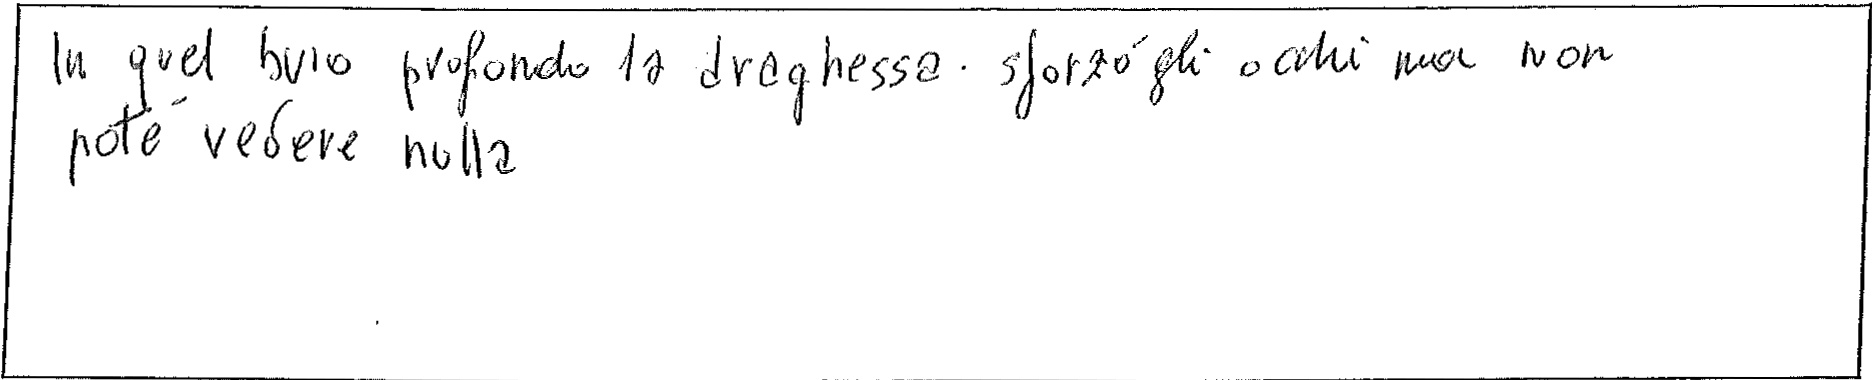 In quel buio profondo la draghessa. sforzó gli occhi ma non
poté vedere nulla